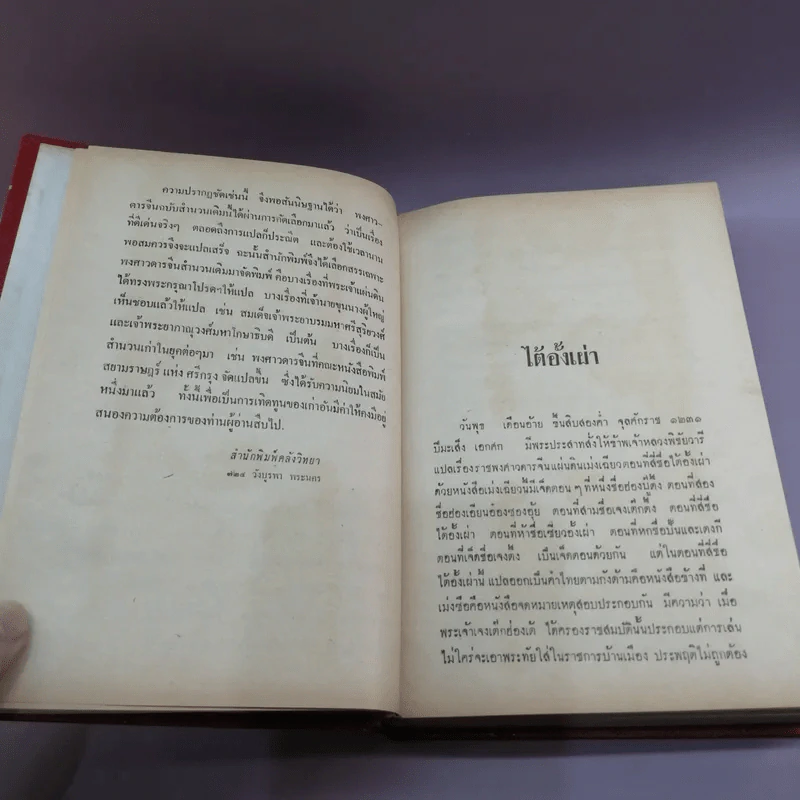 ความปรากฏชัดเช่นนี้ จึงพอสันนิษฐานได้ว่า พงศาว-
ดารจีนฉบับสำนวนเดิมนี้ได้ผ่านการคัดเลือกมาแล้ว ว่าเป็นเรื่อง
ที่ดีเด่นจริงๆ ตลอดถึงการแปลก็ประณีต และต้องใช้เวลานาน
พอสมควรจึงจะแปลเสร็จ ฉะนั้นสำนักพิมพ์จึงได้เลือกสรรเฉพาะ
พงศาวดารจีนสำนวนเดิมมาจัดพิมพ์ คือบางเรื่องที่พระเจ้าแผ่นดิน
ได้ทรงพระกรุณาโปรดฯให้แปล บางเรื่องที่เจ้านายขุนนางผู้ใหญ่
เห็นชอบแล้วให้แปล เช่น สมเด็จเจ้าพระยาบรมมหาศรีสุริยวงศ์
และเจ้าพระยาภาณุวงศ์มหาโกษาธิบดี เป็นต้น บางเรื่องก็เป็น
สำนวนเก่าในยุคต่อๆมา เช่น พงศาวดารจีนที่คณะหนังสือพิมพ์
สยามราษฎร์ แห่ง ศรีกรุง จัดแปลขึ้น ซึ่งได้รับความนิยมในสมัย
หนึ่งมาแล้ว ทั้งนี้เพื่อเป็นการเทิดทูนของเก่าอันมีค่าให้คงมีอยู่
สนองความต้องการของท่านผู้อ่านสืบไป.
สำนักพิมพ์คลังวิทยา
๗๒๔ วังบูรพา พระนคร
ไต้อั้งเผ่า
วันพุธ เดือนอ้าย ขึ้นสิบสองค่ำ จุลศักราช ๑๒๓๑
ปีมะเส็ง เอกศก มีพระประสาทสั่งให้ข้าพเจ้าหลวงพิชัยวารี
แปลเรื่องราชพงศาวดารจีนแผ่นดินเม่งเฉียวตอนที่สี่ชื่อไต้อั้งเผ่า
ด้วยหนังสือเม่งเฉียวนี้มีเจ็ดตอน ๆ ที่หนึ่งชื่อฮ่องบู๊ตึ้ง ตอนที่สอง
ชื่อฮ่องเอียนอ๋องซองอุ้ย ตอนที่สามชื่อเจงเต็กตึ้ง ตอนที่สี่ชื่อ
ไต้อั้งเผ่า ตอนที่ห้าชื่อเซียวอั้งเผ่า ตอนที่หกชื่อบั้นและเตงกี่
ตอนที่เจ็ดชื่อเจงตึ้ง เป็นเจ็ดตอนด้วยกัน แต่ในตอนที่สี่ชื่อ
ไต้อั้งเผ่านี้ แปลออกเป็นคำไทยตามกังต้ามคือหนังสือข้างที่ และ
เม่งซือคือหนังสือจดหมายเหตุสอบประกอบกัน มีความว่า เมื่อ
พระเจ้าเจงเต๊กฮ่องเต้ ได้ครองราชสมบัตินั้นประกอบแต่การเล่น
ไม่ใคร่จะเอาพระทัยใส่ในราชการบ้านเมือง ประพฤติไม่ถูกต้อง